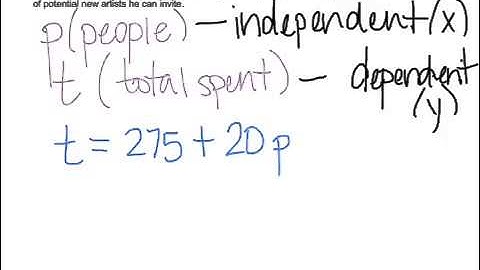 of potential new artists he can invite.
p(people) — independent (x)
t (total spent) — dependent
(y)
t = 275 + 20p